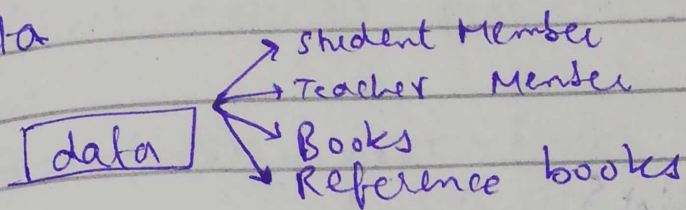 ta
Student Member
Teacher Member
data
Books
Reference books